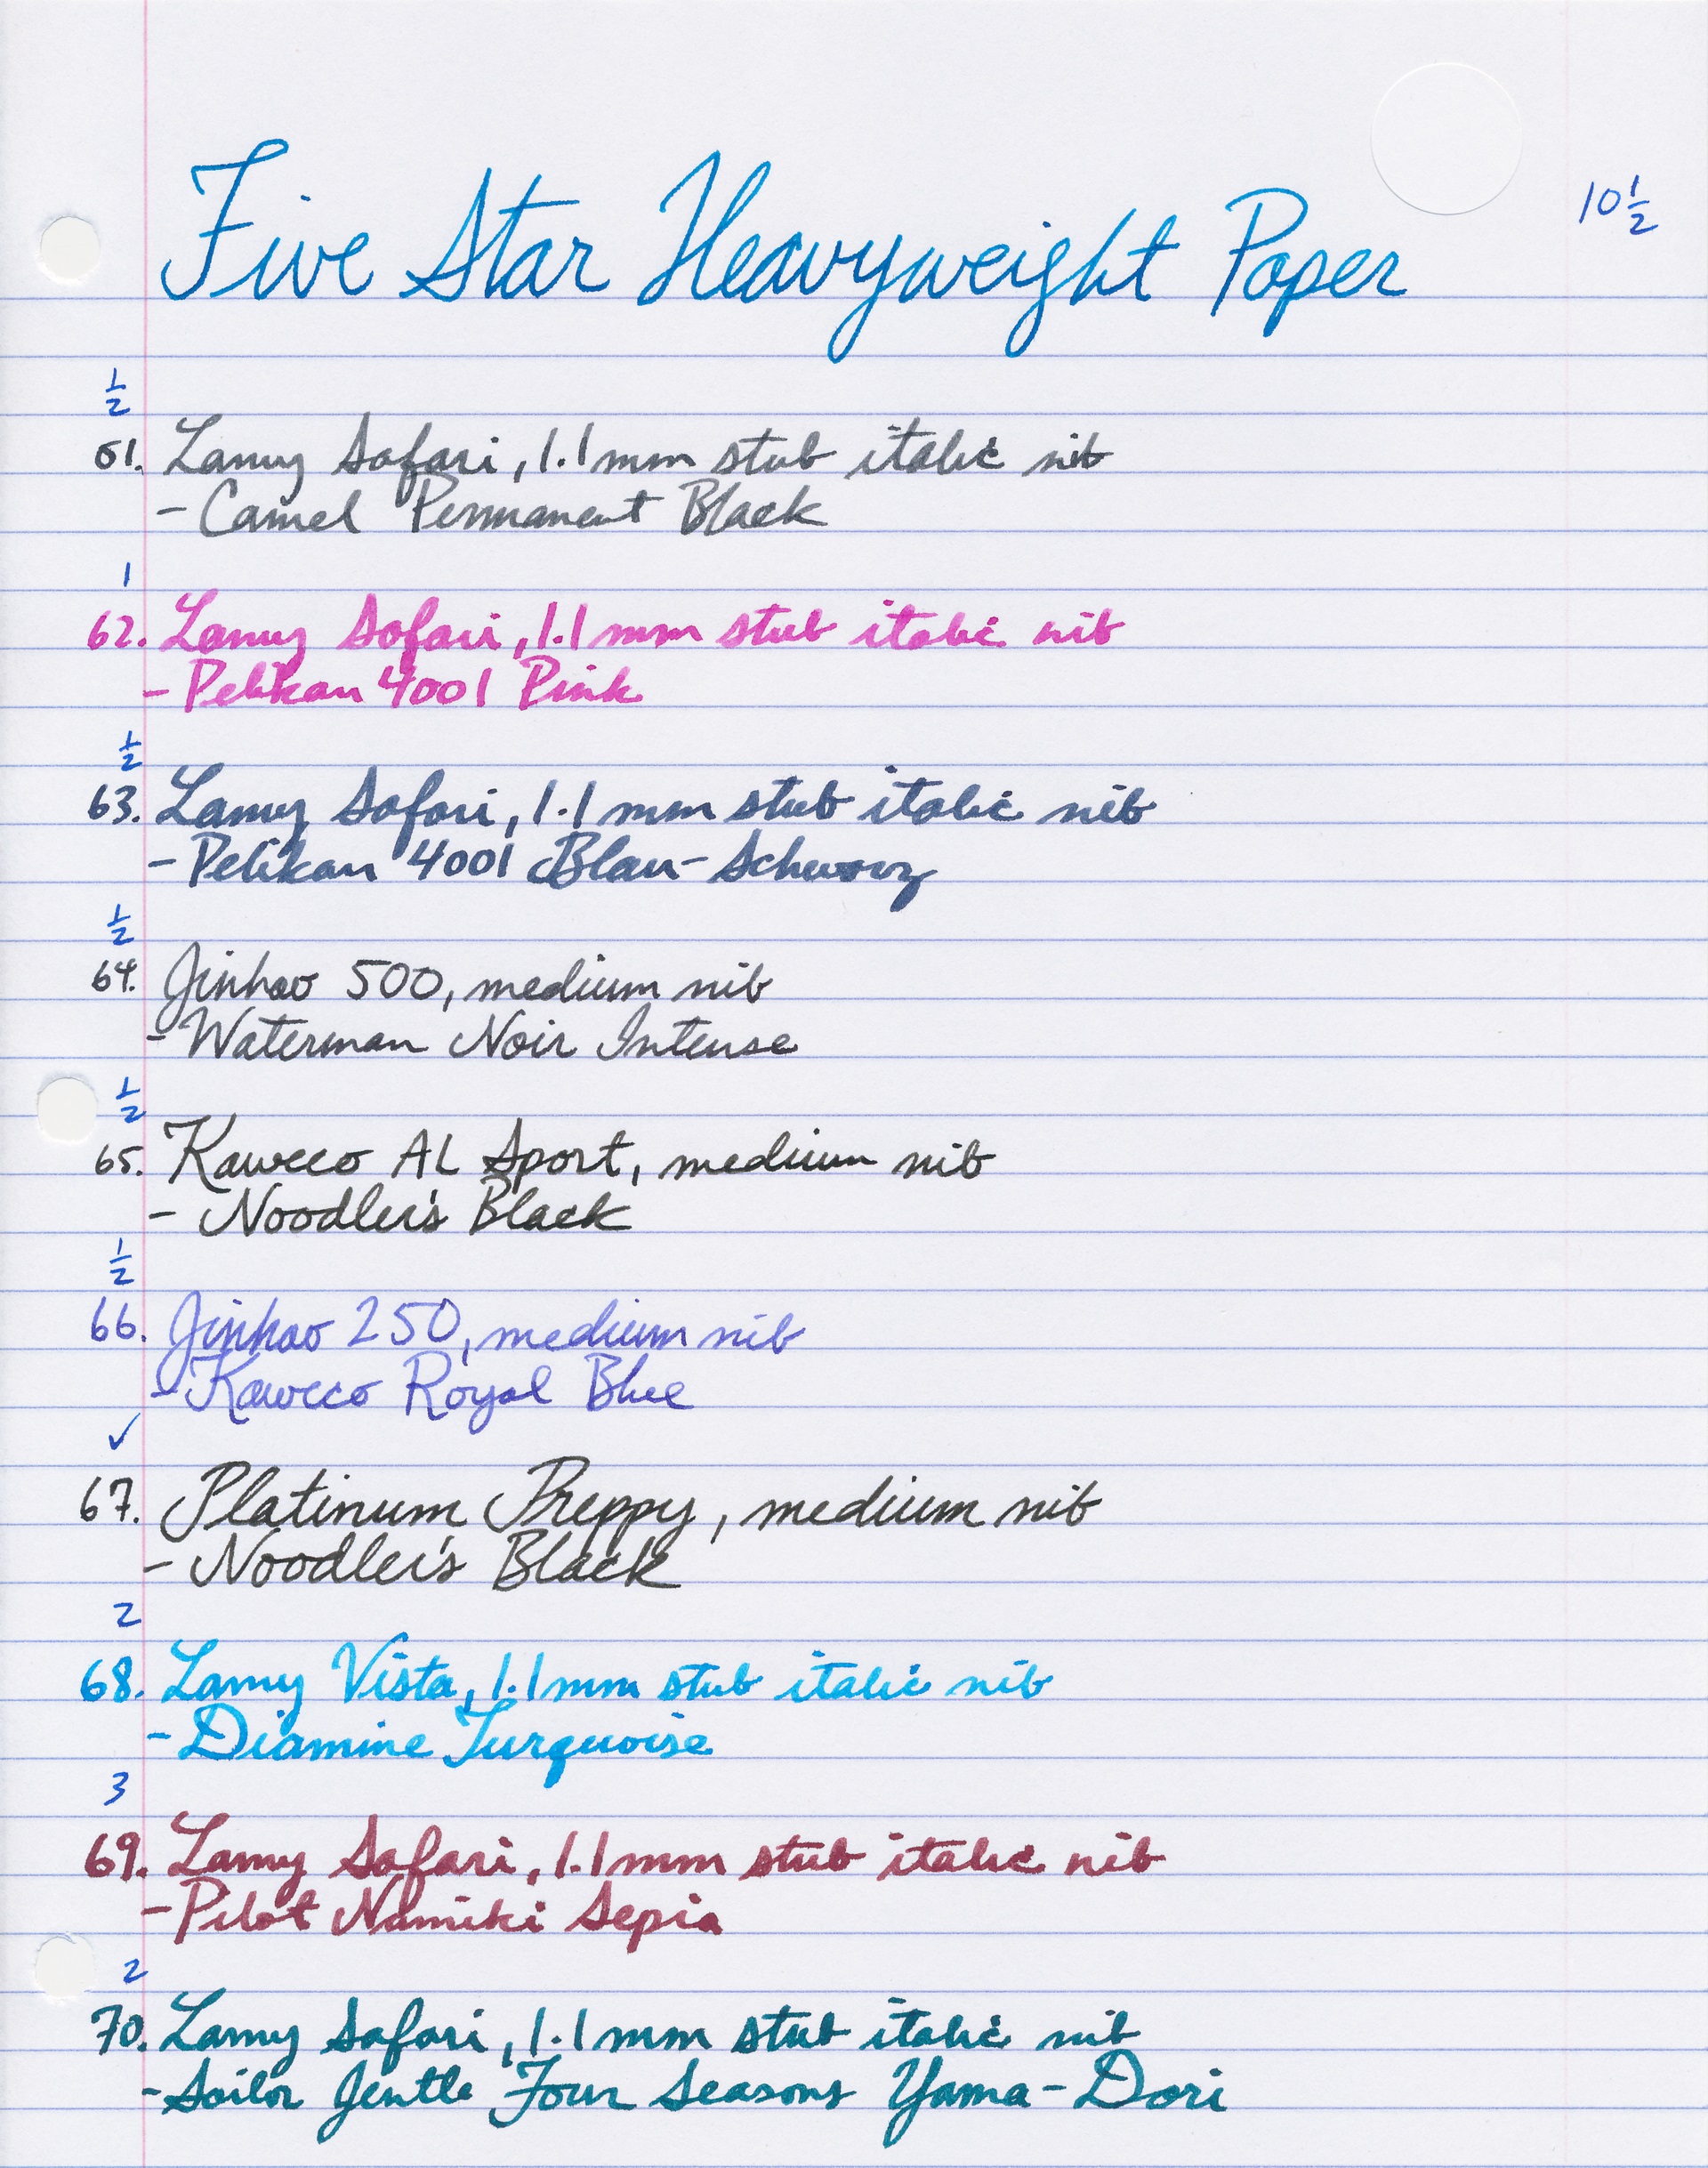 Five Star Heavyweight Paper
10 1/2
1/2
61. Lamy Safari, 1.1mm stub italic nib
- Camel Permanent Black
1
62. Lamy Safari, 1.1mm stub italic nib
- Pelikan 4001 Pink
1/2
63. Lamy Safari, 1.1mm stub italic nib
- Pelikan 4001 Blau-Schwarz
1/2
64. Jinhao 500, medium nib
- Waterman Noir Intense
1/2
65. Kaweco AL Sport, medium nib
- Noodler's Black
1/2
66. Jinhao 250, medium nib
- Kaweco Royal Blue
✓
67. Platinum Preppy, medium nib
- Noodler's Black
2
68. Lamy Vista, 1.1mm stub italic nib
- Diamine Turquoise
3
69. Lamy Safari, 1.1mm stub italic nib
- Pilot Namiki Sepia
2
70. Lamy Safari, 1.1mm stub italic nib
- Sailor Jentle Four Seasons Yama-Dori